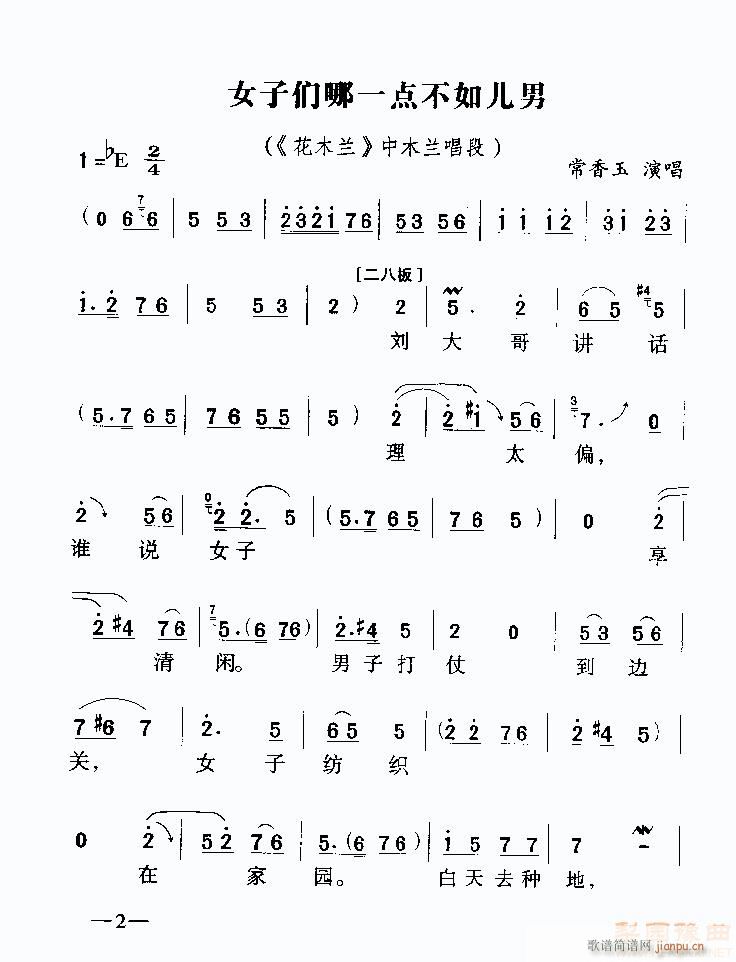 女子们哪一点不如儿男
(《花木兰》中木兰唱段)
1=♭E 2/4
常香玉 演唱
(0 6 7 6 | 5 5 3 | 2 3 2 1 7 6 | 5 3 5 6 | 1 1 1 2 | 3 1 2 3 |
[二八板]
1· 2 7 6 | 5 5 3 | 2) 2 | 5· 2 | 6 5 #4 5 |
刘 大 哥 讲 话
(5·7 6 5 | 7 6 5 5 | 5) 2 | 2 #1 5 6 | 3 7· 0 |
理 太 偏,
2 5 6 | 0 2 2· 5 | (5·7 6 5 | 7 6 5) | 0 2 |
谁 说 女 子 享
2 #4 7 6 | 7 5·(6 7 6) | 2·#4 5 | 2 0 | 5 3 5 6 |
清 闲。 男 子 打 仗 到 边
7 #6 7 | 2· 5 | 6 5 5 | (2 2 7 6 | 2 #4 5) |
关, 女 子 纺 织
0 2 | 5 2 7 6 | 5·(6 7 6) | 1 5 7 7 | 7 - |
在 家 园。 白 天 去 种 地,
—2—
梨园豫曲
歌谱简谱网 jianpu.cn